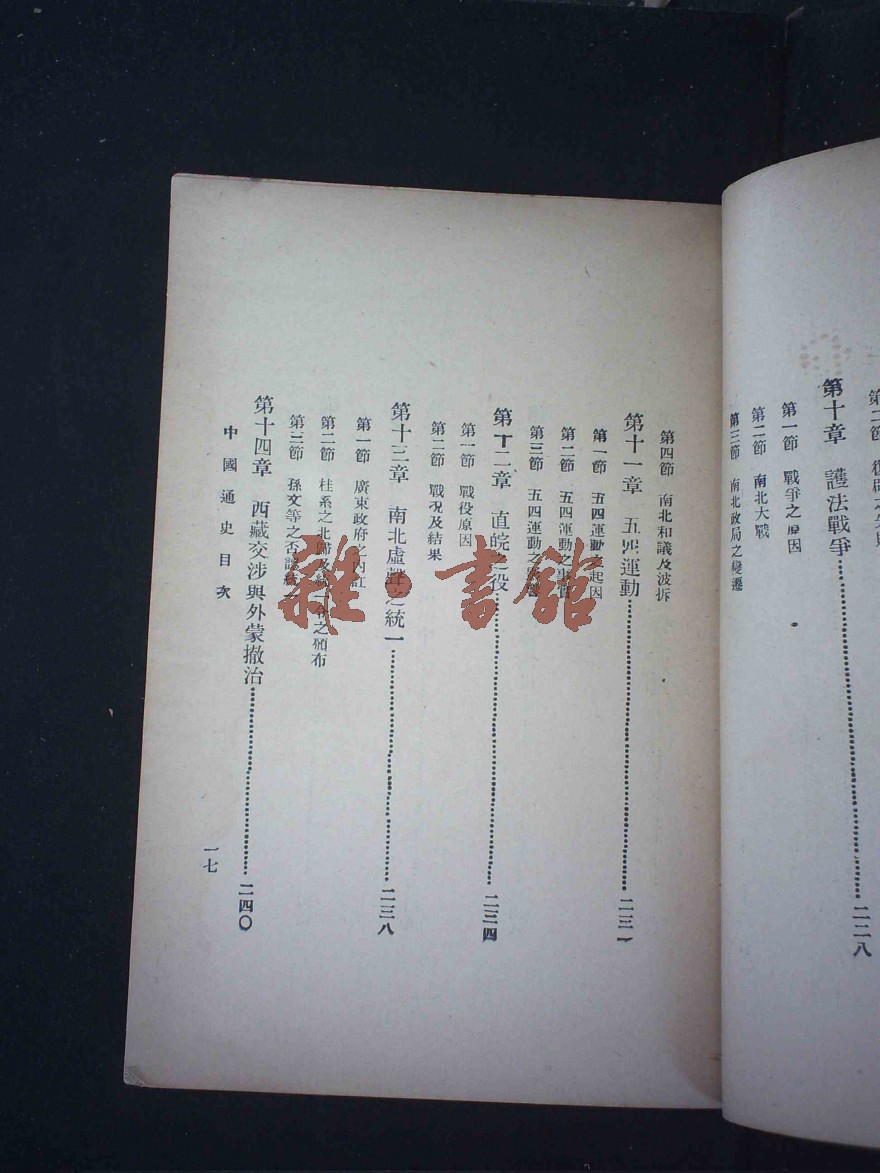 第十章 護法戰爭 二二八
第一節 戰爭之原因
第二節 南北大戰
第三節 南北政局之變遷
第四節 南北和議及波折
第十一章 五四運動 二三一
第一節 五四運動之起因
第二節 五四運動之
第三節 五四運動之
第十二章 直皖之役 二三四
第一節 戰役原因
第二節 戰況及結果
第十三章 南北虛聲之統一 二三八
第一節 廣東政府之內訌
第二節 桂系之北歸及統一令之頒布
第三節 孫文等之否認統一
第十四章 西藏交涉與外蒙撤治 二四〇
中國通史目次
一七
雜·書館